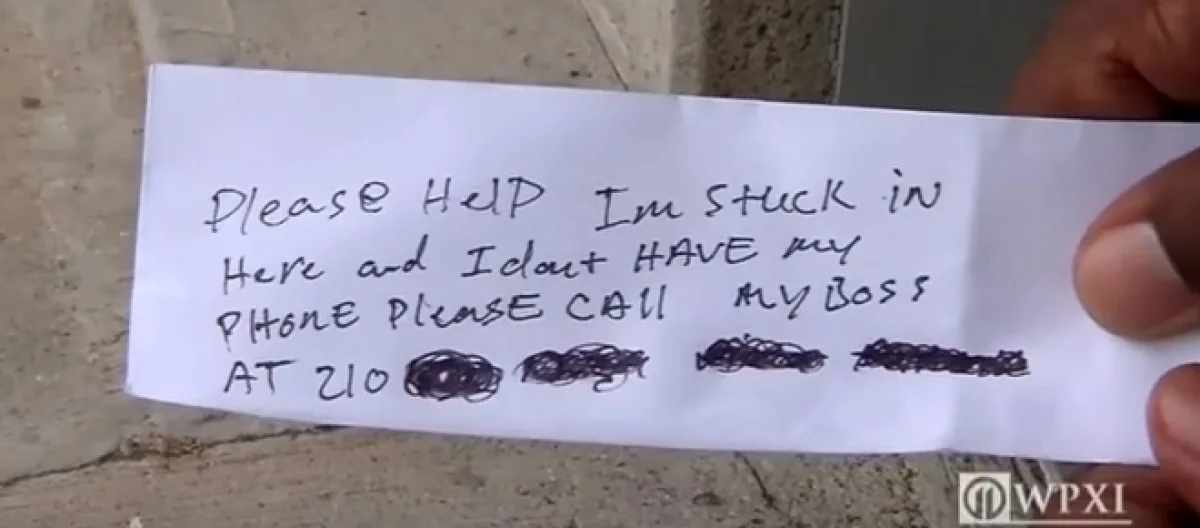 Please Help Im stuck in
Here and I dont HAVE my
PHONE Please CAll MY Boss
AT 210
WPXI